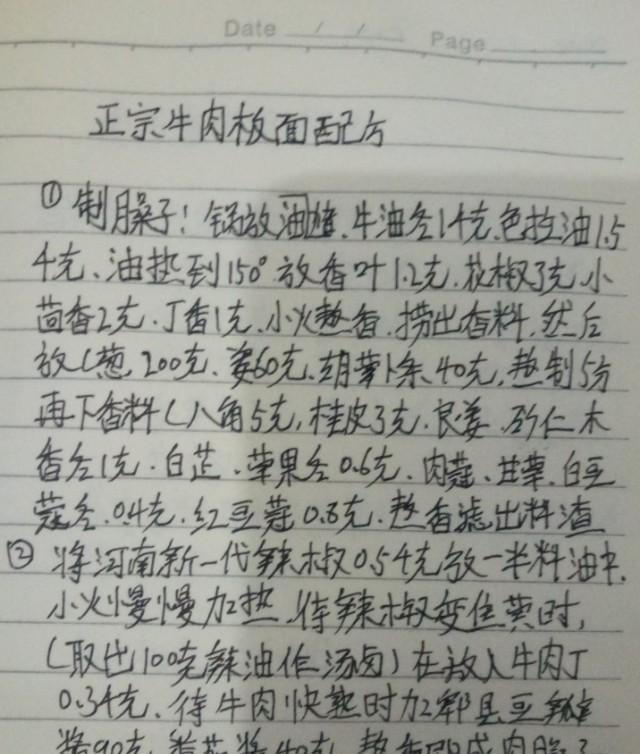 Date / / Page
正宗牛肉板面配方
① 制臊子！锅放油渣、牛油各14克、色拉油1.5
4克、油热到150°放香叶1.2克、花椒3克、小
茴香2克、丁香1克、小火熬香、捞出香料、然后
放（葱、200克、姜60克、胡萝卜条、40克，熬制5分
再下香料（八角5克，桂皮3克、良姜、砂仁木
香各1克、白芷、草果各0.6克、肉蔻、甘草、白豆
蔻各、0.4克、红豆蔻0.8克、熬香滤出料渣
② 将河南新一代辣椒0.54克放一半料油中、
小火慢慢加热、待辣椒变焦黄时，
（取出100克辣油作汤卤）在放入牛肉丁
0.34克、待牛肉快熟时加郫县豆瓣
酱90克